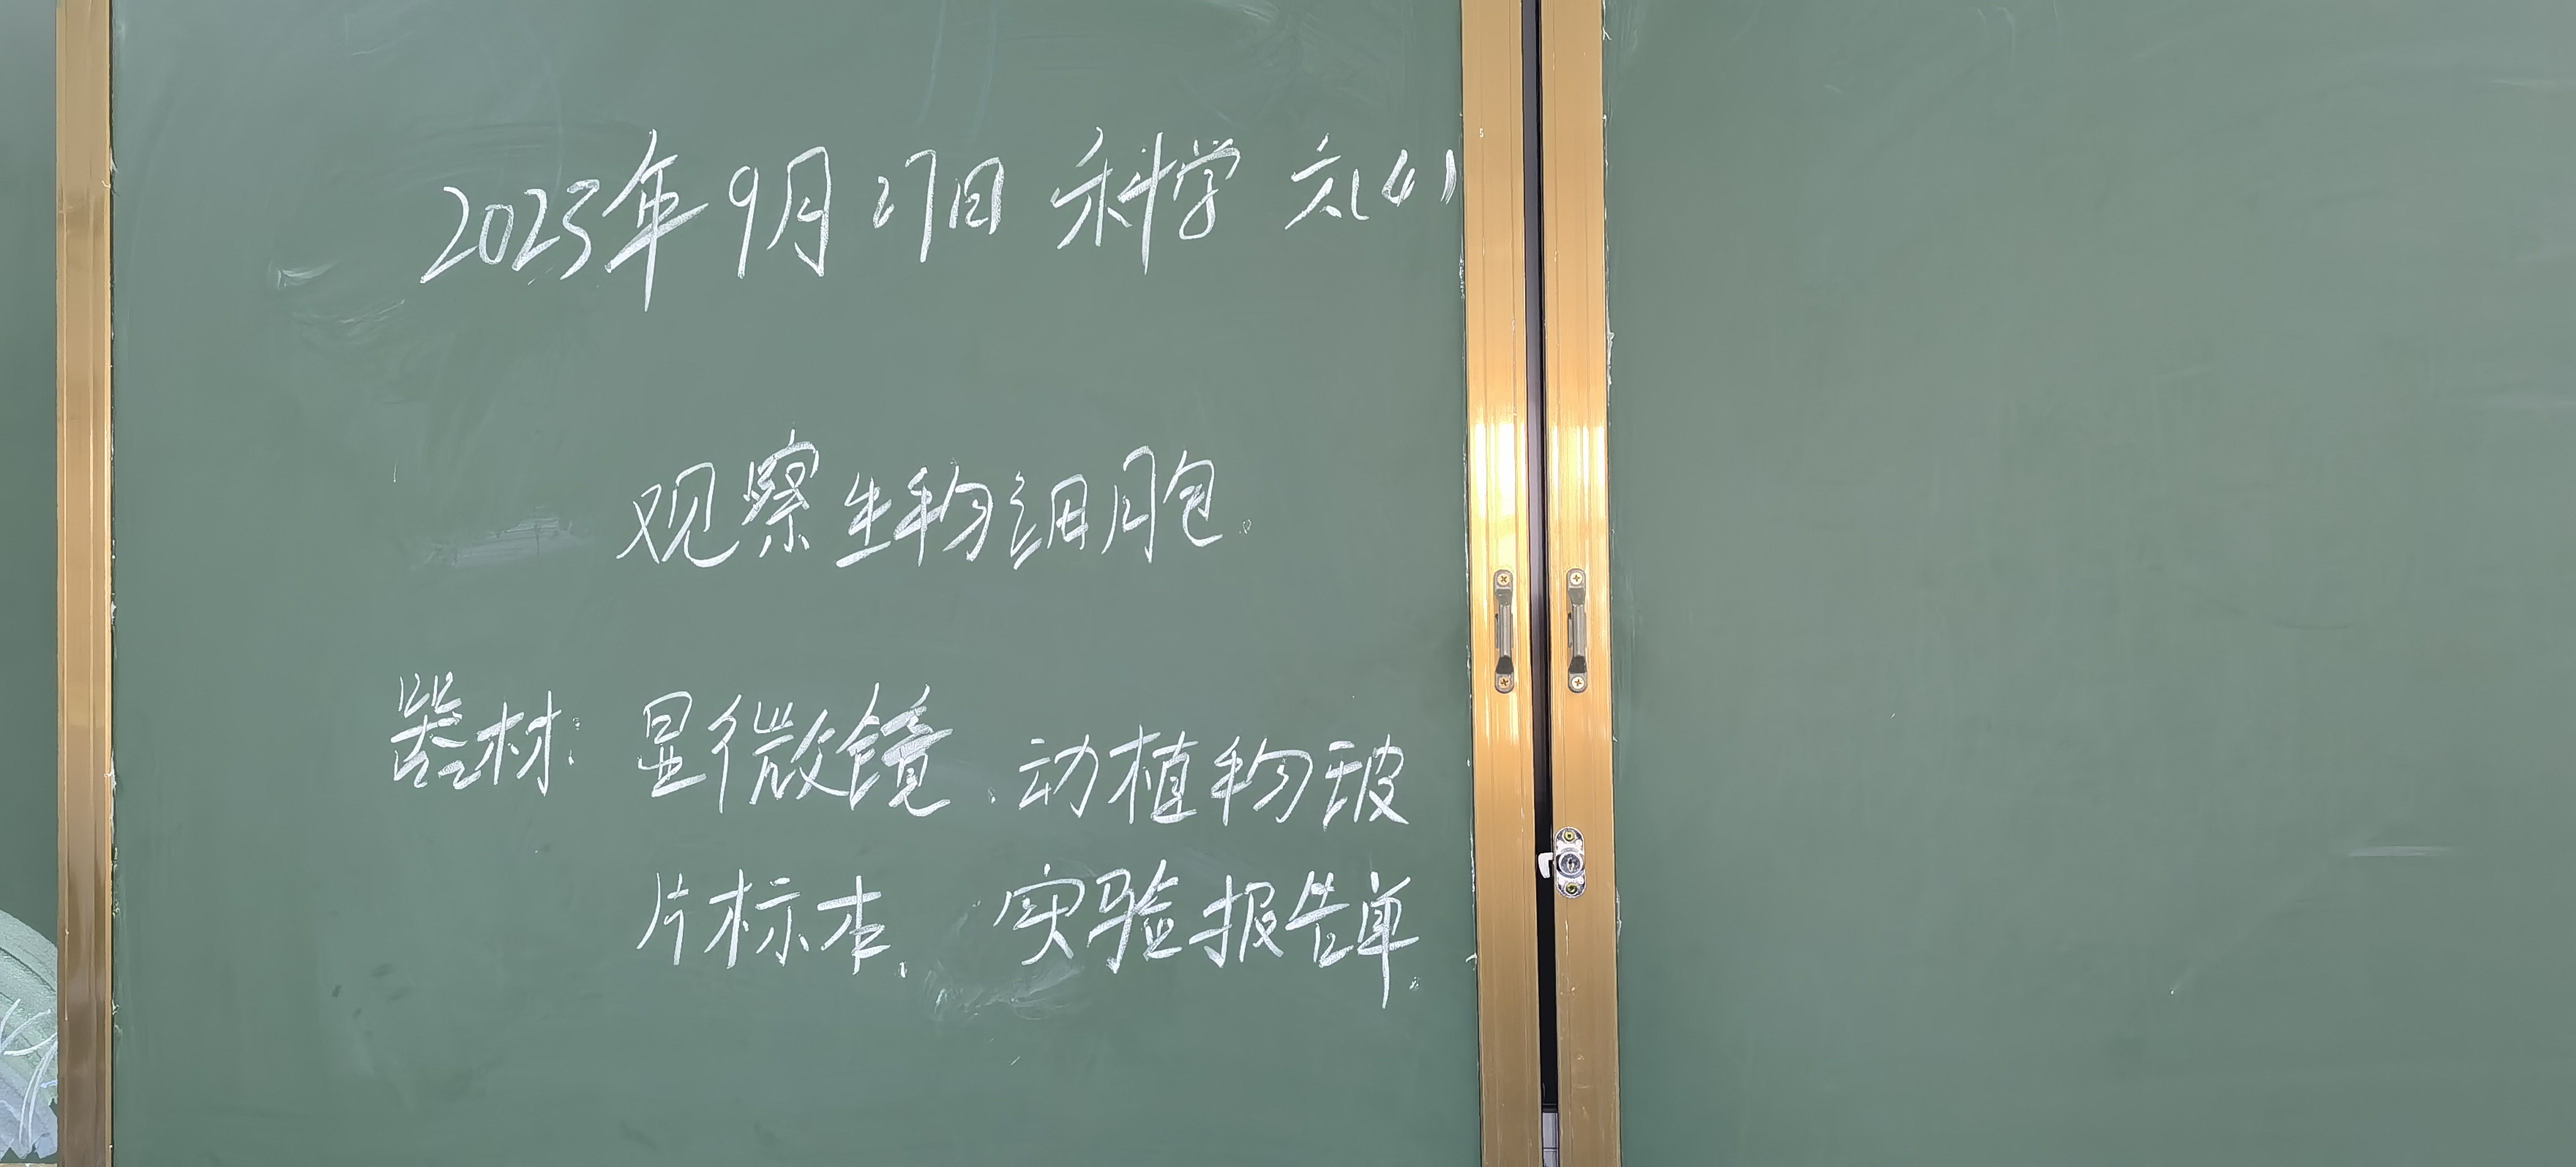 2023年9月27日 科学 六(4)
观察生物细胞。
器材:显微镜、动植物玻
片标本、实验报告单.